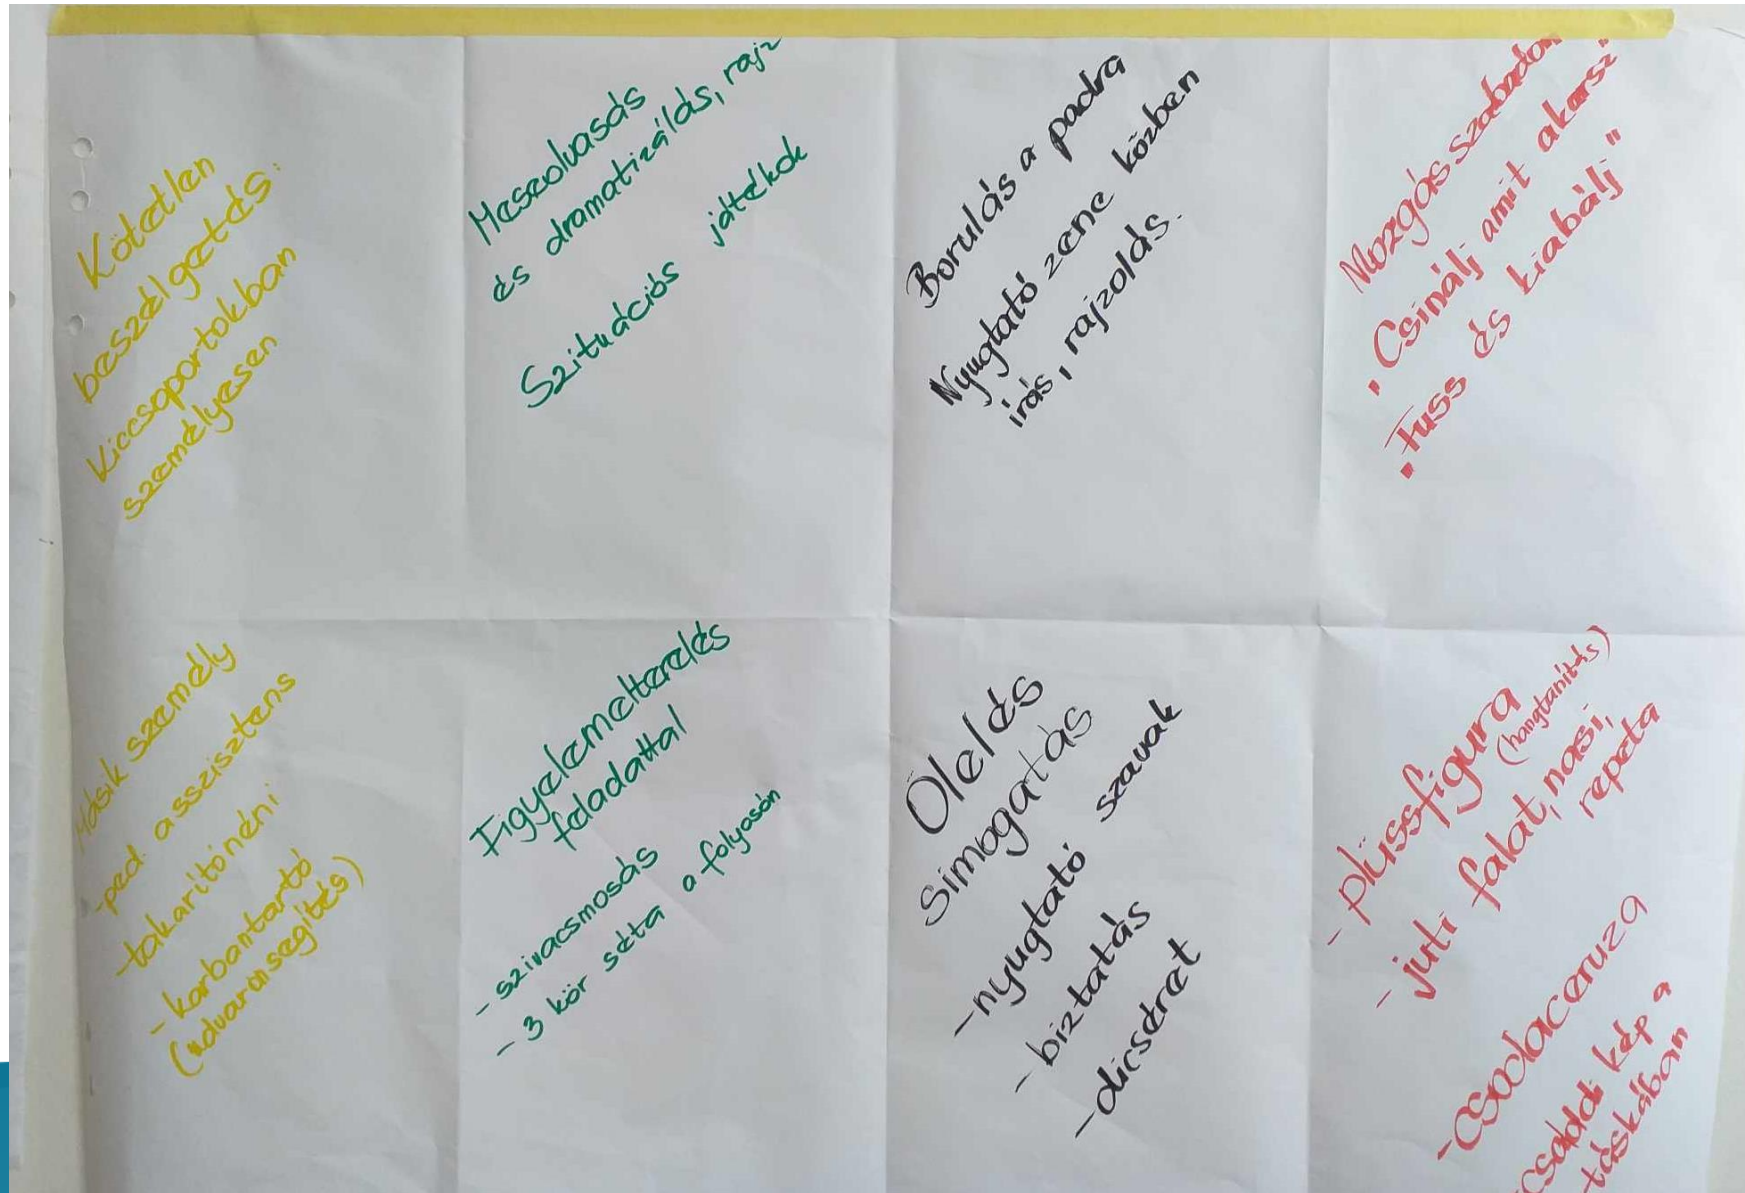 Kötetlen
beszélgetés:
kiccsoportokban
személyesen
Meseolvasás
és dramatizálás, rajz
Szituációs játékok
Borulás a padra
Nyugtató zene közben
írás, rajzolás.
Mozgás szabadon
"Csinálj amit akarsz"
"Fuss és kiabálj"
Másik személy
-ped. asszisztens
-takarítónéni
-karbantartó
(udvaron segítés)
Figyelemelterelés
feladattal
- szivacsmosás
- 3 kör séta a folyosón
Ölelés
simogatás
-nyugtató szavak
- biztatás
-dicséret
- plüssfigura
(hangtanítás)
- juti falat, nasi,
repeta
-csodaceruza
családi kép a
táskában